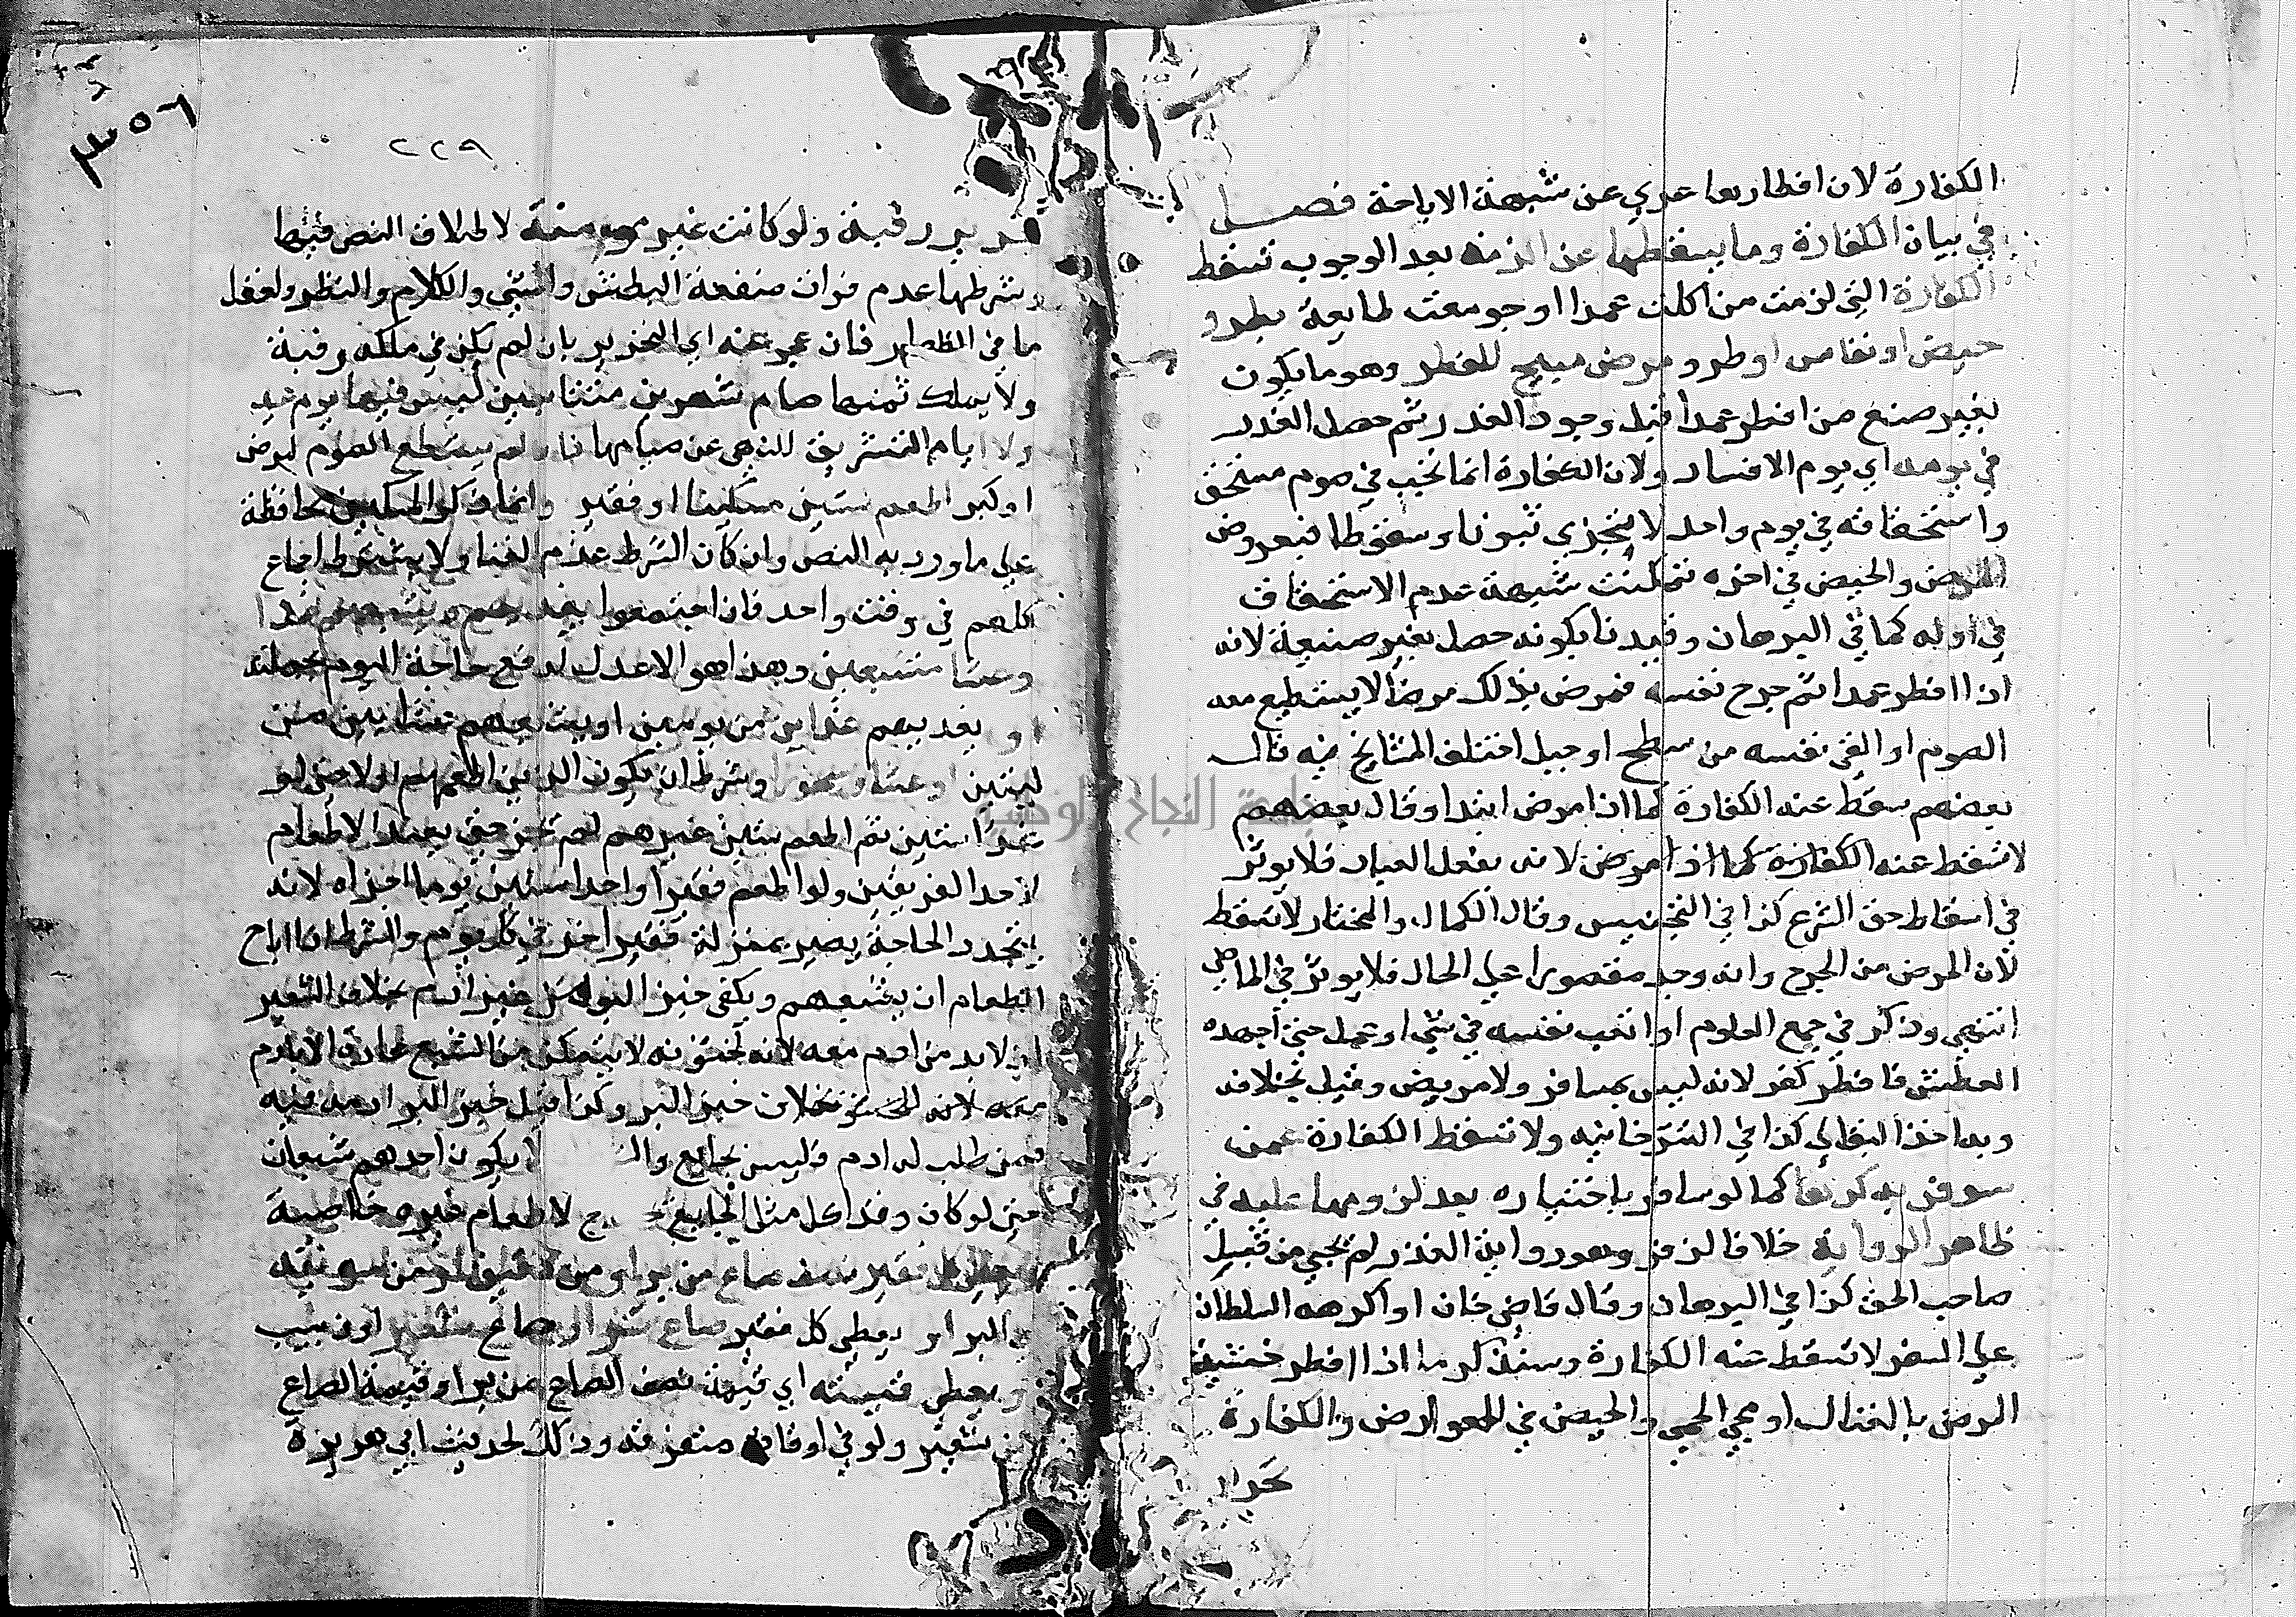 الكفارة لان افطارها عري عن شبهة الاباحة فصل
في بيان الكفارة وما يسقطها عن الذمة بعد الوجوب تسقط
الكفارة التي لزمت من اكلت عمدا او جومعت طايعة بطرو
حيض او نفاس او طرو مرض مبيح للفطر وهو ما يكون
بغير صنع من افطر عمدا قبل وجود العذر ثم حصل العذر
في يومه اي يوم الافساد ولان الكفارة انما تجب في صوم مستحق
واستحقاقه في يوم واحد لا يتجزي ثبوتا وسقوطا فبعروض
المرض والحيض في اخره تمكنت شبهة عدم الاستحقاق
في اوله كما في البرهان وقيدنا بكونه حصل بغير صنيعة لانه
اذا افطر عمدا ثم جرح نفسه فمرض بذلك مرضا لا يستطيع معه
الصوم او القي نفسه من سطح او جبل اختلف المشايخ فيه قال
بعضهم سقط عنه الكفارة كما اذا مرض ابتدا وقال بعضهم
لا سقط عنه الكفارة كما اذا مرض لانه بفعل العباد فلا يوثر
في اسقاط حق الشرع كذا في التجنيس وقال الكمال والمختار لا تسقط
لان المرض من الجرح وانه وجد مقصورا علي الحال فلا يوثر في الماضي
انتهي وذكر في جمع العلوم او اتعب نفسه في شي او عمل حتى اجهده
العطش فافطر كفر لانه ليس بمسافر ولا مريض وقيل بخلافه
وبه اخذ البقالي كذا في التترخانيه ولا تسقط الكفارة عمن
سوفر به كرها كما لو سافر باختياره بعد لزومها عليه في
ظاهر الرواية خلافا لزفر وهو رواية العذر لم يجي من قبل
صاحب الحق كذا في البرهان وقال قاضي خان او اكرهه السلطان
علي السفر لا تسقط عنه الكفارة وسنذكر ما اذا افطر خشية
المرض بالقتال او مجي الحمي والحيض في العوارض والكفارة
تحرير
٣٥٦
٢٢٩
تحرير رقبة ولو كانت غير مومنة لاطلاق النص فيها
وشرطها عدم فوات منفعة البطش والمشي والكلام والنظر والعقل
ما في الظهار فان عجز عنه اي التحرير بان لم يكن في ملكه رقبة
ولا يملك ثمنها صام شهرين متتابعين ليس فيها يوم عيد
ولا ايام التشريق للنهي عن صيامها فان لم يستطع الصوم لمرض
او كبر اطعم ستين مسكينا او فقير وانما ذكر المسكين محافظة
علي ما ورد به النص وان كان الشرط عدم الغنا ولا يشترط اجماع
كلهم في وقت واحد فان اجتمعوا يغديهم ويشبعهم غدا
وعشا مشبعين وهذا هو الاعدل لدفع حاجة اليوم بجملته
او يغديهم غداين من يومين او يعشيهم عشايين من
ليلتين او عشا وسحورا وشرط ان يكون الذين اطعمهم اولا حتى لو
غدا ستين ثم اطعم ستين غيرهم لم يجز حتى يعيد الاطعام
لاحد الفريقين ولو اطعم فقيرا واحدا ستين يوما اجزاه لانه
بتجدد الحاجة يصير بمنزلة فقير اخر في كل يوم والشرط اذا اباح
الطعام ان يشبعهم ويكفي خبز البر من غير ادام بخلاف الشعير
اي لا بد من ادم معه لانه لخشونته لا يتمكن من الشبع عادة الا بادم
معه لانه بخلاف خبز البر وكذا قيل خبز البر ادمه فيه
فمن طلب له ادم فليس بجايع وال ان يكون احدهم شبعان
حتى لو كان وقد اكل مثل الجايع لاطعام غيره خاصية
يعطي كل فقير نصف صاع من بر او من دقيق او من سويقه
اي البر او يعطي كل فقير صاع تمر او صاع شعير او زبيب
او يعطي قيمته اي قيمة نصف الصاع من بر او قيمة الصاع
من شعير ولو في اوقات متفرقة وذلك لحديث ابي هريرة
جامعة النجاح الوطنية